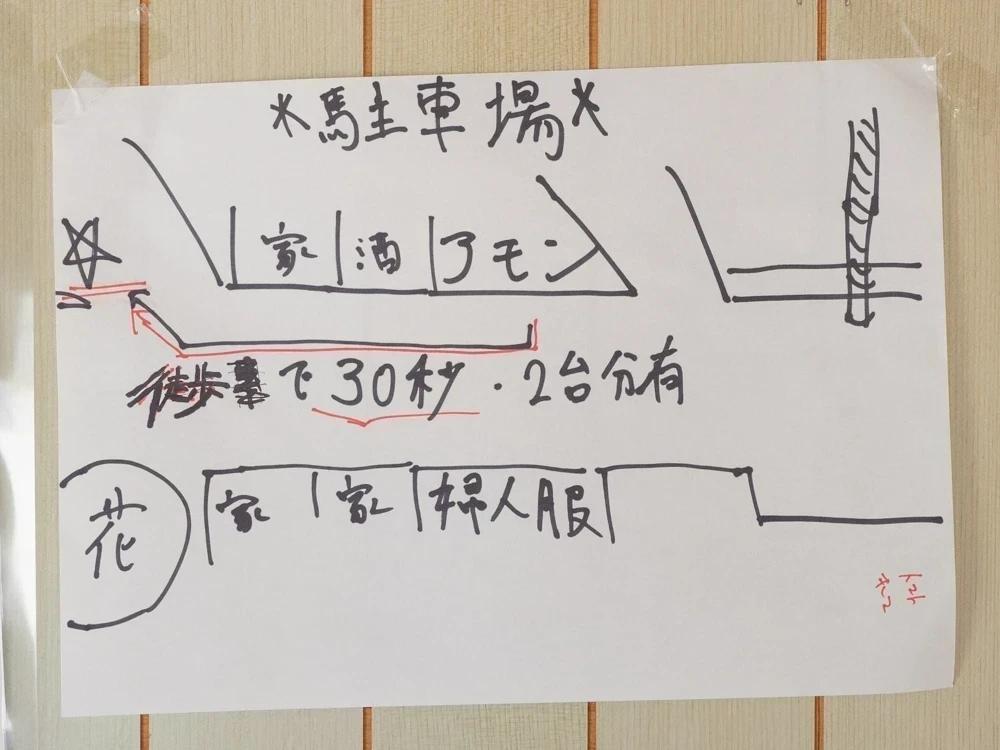 *駐車場*
家 酒 アモン
徒歩で30秒・2台分有
花 家 家 婦人服